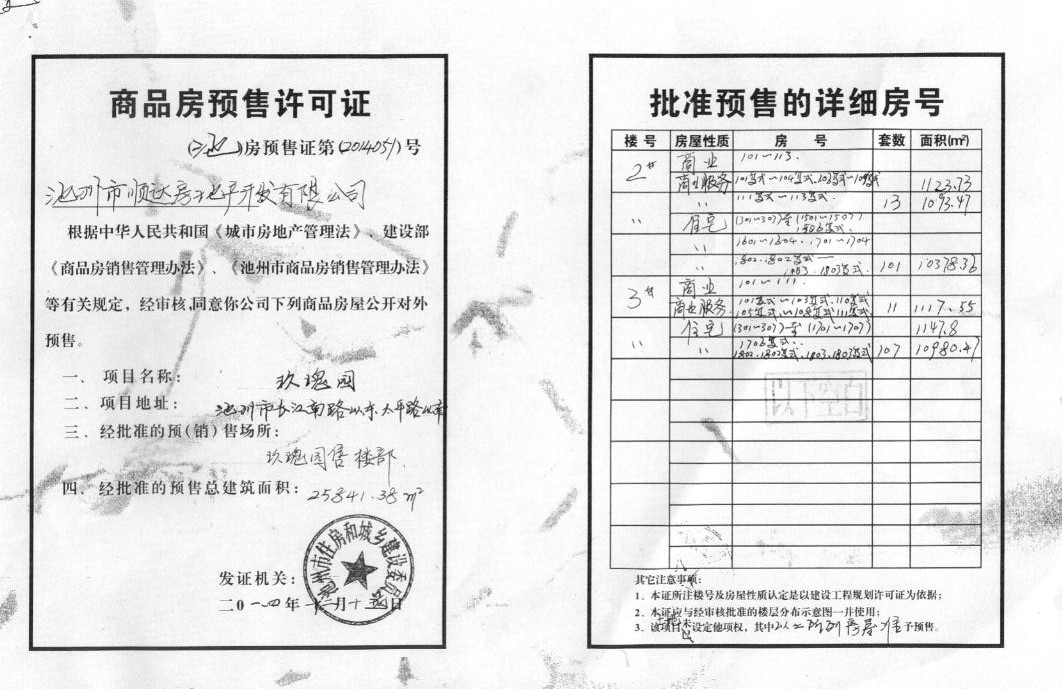 商品房预售许可证
(池)房预售证第(2014051)号
池州市顺达房地产开发有限公司
根据中华人民共和国《城市房地产管理法》、建设部
《商品房销售管理办法》、《池州市商品房销售管理办法》
等有关规定，经审核，同意你公司下列商品房屋公开对外
预售。
一、项目名称：玫瑰园
二、项目地址：池州市长江南路以东、太平路以南
三、经批准的预(销)售场所：
玫瑰园售楼部
四、经批准的预售总建筑面积：25841.38m²
池州市住房和城乡建设委员会
发证机关：
二0一四年十二月十 日
批准预售的详细房号
楼号 房屋性质 房号 套数 面积(m²)
2# 商业 101~113.
商业服务 101复式~104复式、 1123.73
〃 111复式~113复式. 13 1093.47
〃 住宅 (301~307)至(1501~1507)
〃 1601~1604、1701~1704
〃 1802、1802复式
1803、1803复式. 101 10378.36
3# 商业 101~111.
商业服务 101复式~103复式、110复式
105复式~108复式、111复式 11 1117.55
住宅 (301~307)至(1701~1707) 1147.8
〃 〃 1706复式、
1802、1802复式、1803、1803复式 107 10980.47
以下空白
其它注意事项：
1、本证所注楼号及房屋性质认定是以建设工程规划许可证为依据；
2、本证应与经审核批准的楼层分布示意图一并使用；
3、该项目未设定他项权，其中以上所列房屋准予预售。